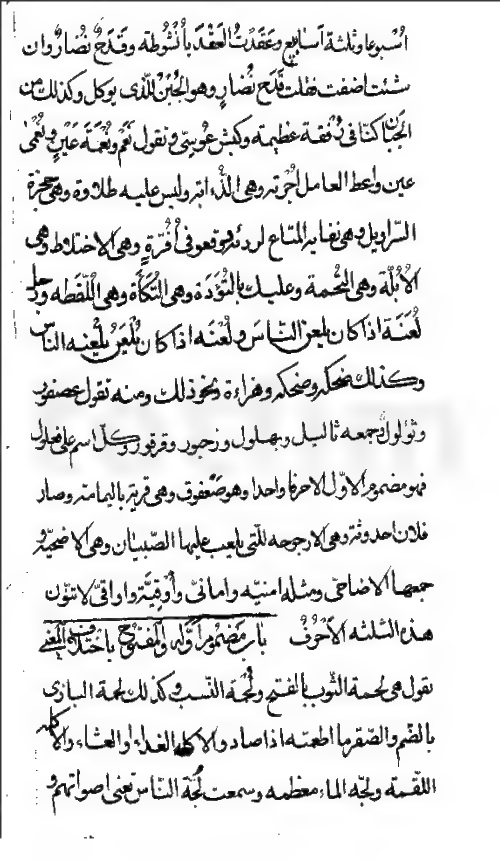 اسبوعا وثلثة اسابيع وعقدت العقد بأنشوطة وقدح نضار وان
شئت اضفت فقلت قدح نضار وهو الجبن للذى يوكل وكذلك من
الجبان كنا فى رفقة عظيمة وكبش عوسى وتقول نعم ونعمة عين ونعمى
عين واعط العامل اجرته وهى الذؤابة وليس عليه طلاوة وهى حجزة
السراويل وهى نفاية المتاع لرديه ووقعوا فى أفرة وهى الاختلاط وهى
الابلة وهى التخمة وعليك بالتؤدة وهى التكأة وهى اللقطه ورجل
لعنة اذا كان يلعن الناس ولعنه اذا كان يلعن يلعنه الناس
وكذلك ضحكة وضحكه وهزاءة ونحو ذلك ومنه تقول عصفور
وثؤلول وجمعه ثاليل وبهلول وزنبور وقرقور وكل اسم على فعلول
فهو مضموم الاول الا حرفا واحدا وهو صعفوق وهى قرية باليمامة وصار
فلان احدوثة وهى الارجوحه للتى يلعب عليها الصبيان وهى الاضحية و
جمعها الاضاحى ومثله امنيه وامانى وأوقية واواقى لا تنون
هذه الثلثه الأحرف باب مضموم اوله والمفتوح باختلاف المعنى
تقول هى لحمة الثوب بالفتح ولحمة النسب وكذلك لحمة البازى
بالضم والصقر ما اطعمته اذا صاد والاكله الغداء او العشاء والاكله
اللقمة ولجة الماء معظمه وسمعت لجة الناس تعنى اصواتهم و